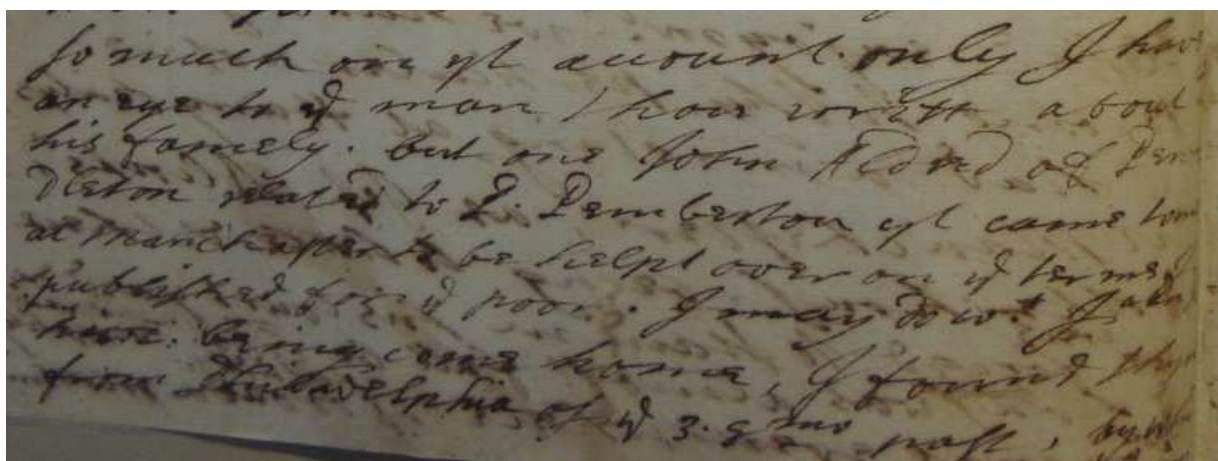 so much on yt account. only I have
an eye to ye man I have writt about
his famely. but one John
dleton related to P. Pemberton yt came to me
at Manchester to be helpt over on ye termes I
published for ye poor. I may do wt I
him. being come home, I found thy
from Philadelphia of ye 3. 9 mo past, by